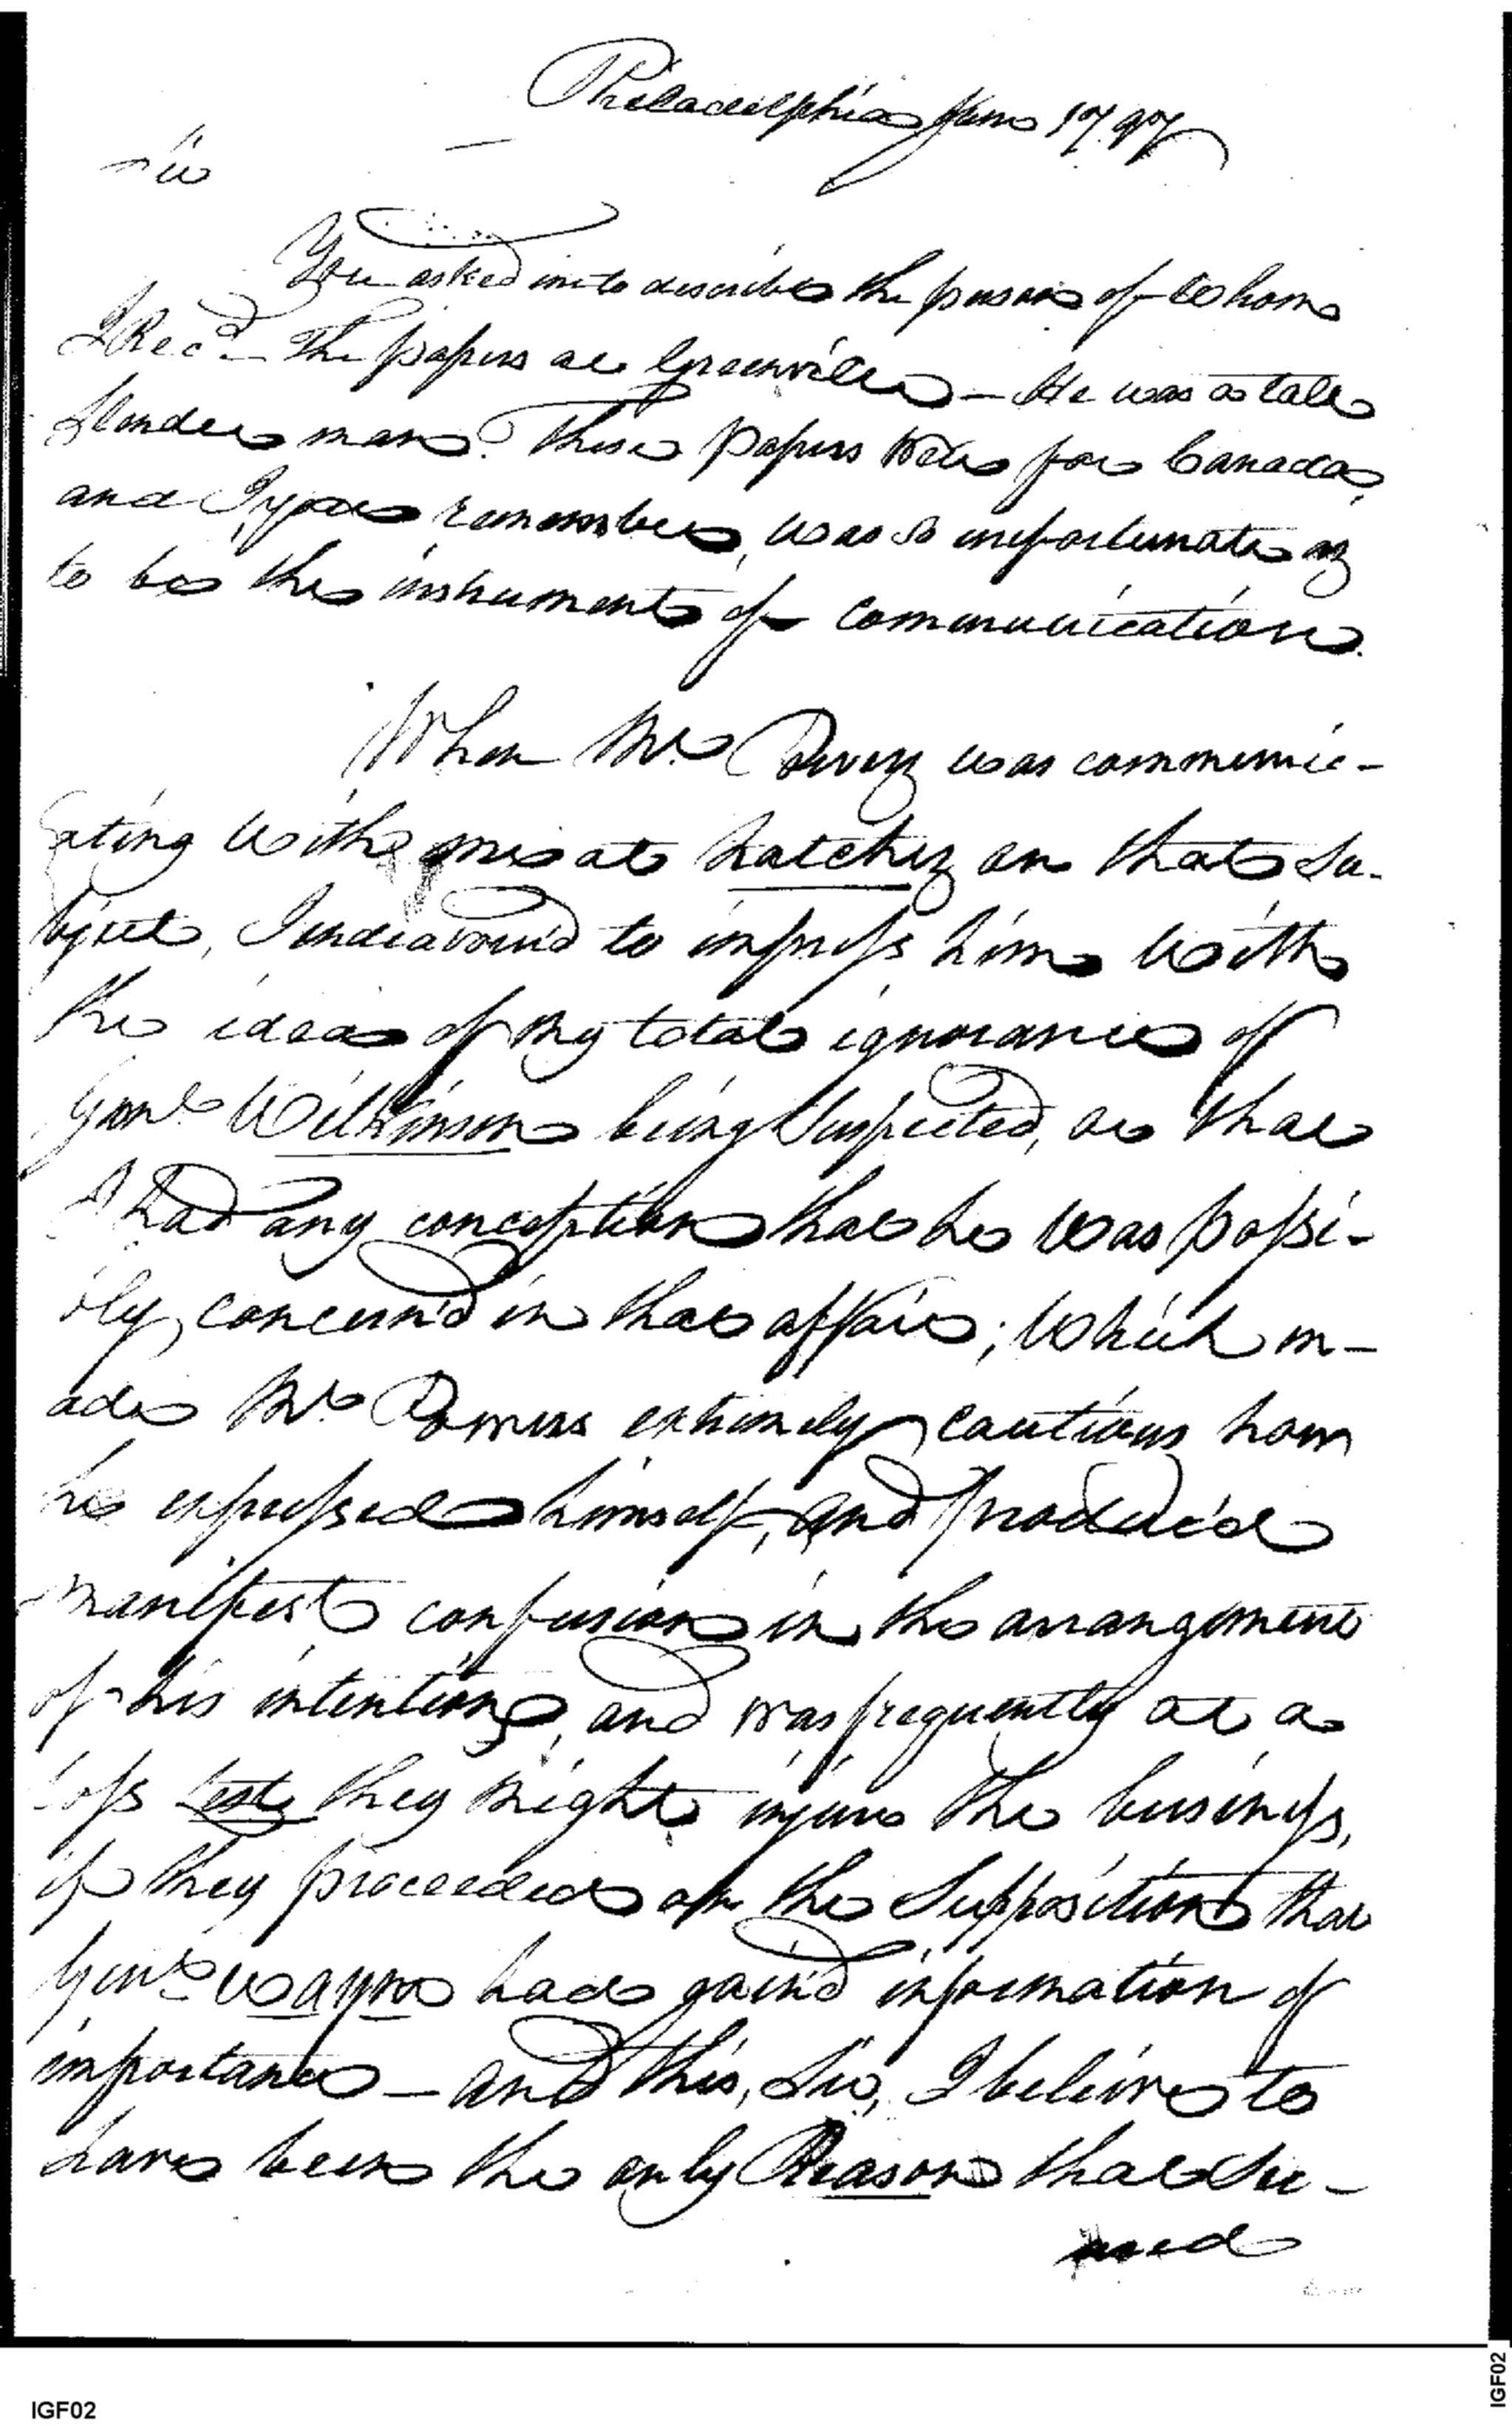 Philadelphia June 1797
Sir
You asked me to describe the person of whom
I Rec.d the papers at Greenville — He was a tall
Slender man. These papers were for Canada,
and I, you remember, was so unfortunate as
to be the instrument of communication.
When Mr. Power was communic-
ating with me at Natchez on that su-
bject, I indeavour'd to impress him with
the idea of my total ignorance of
Genl. Wilkinson being Suspected, or that
I had any conception that he was possi-
bly concern'd in that affair; which m-
ade Mr. Powers extremely cautious how
he expressed himself, and produc'd
manifest confusion in the arrangement
of his intentions, and was frequently at a
loss lest they might injure the business,
if they proceeded on the Supposition that
Genl. Wayne had gain'd information of
importance — and this, Sir, I believe to
have been the only Reason that Su-
IGF02
IGF02